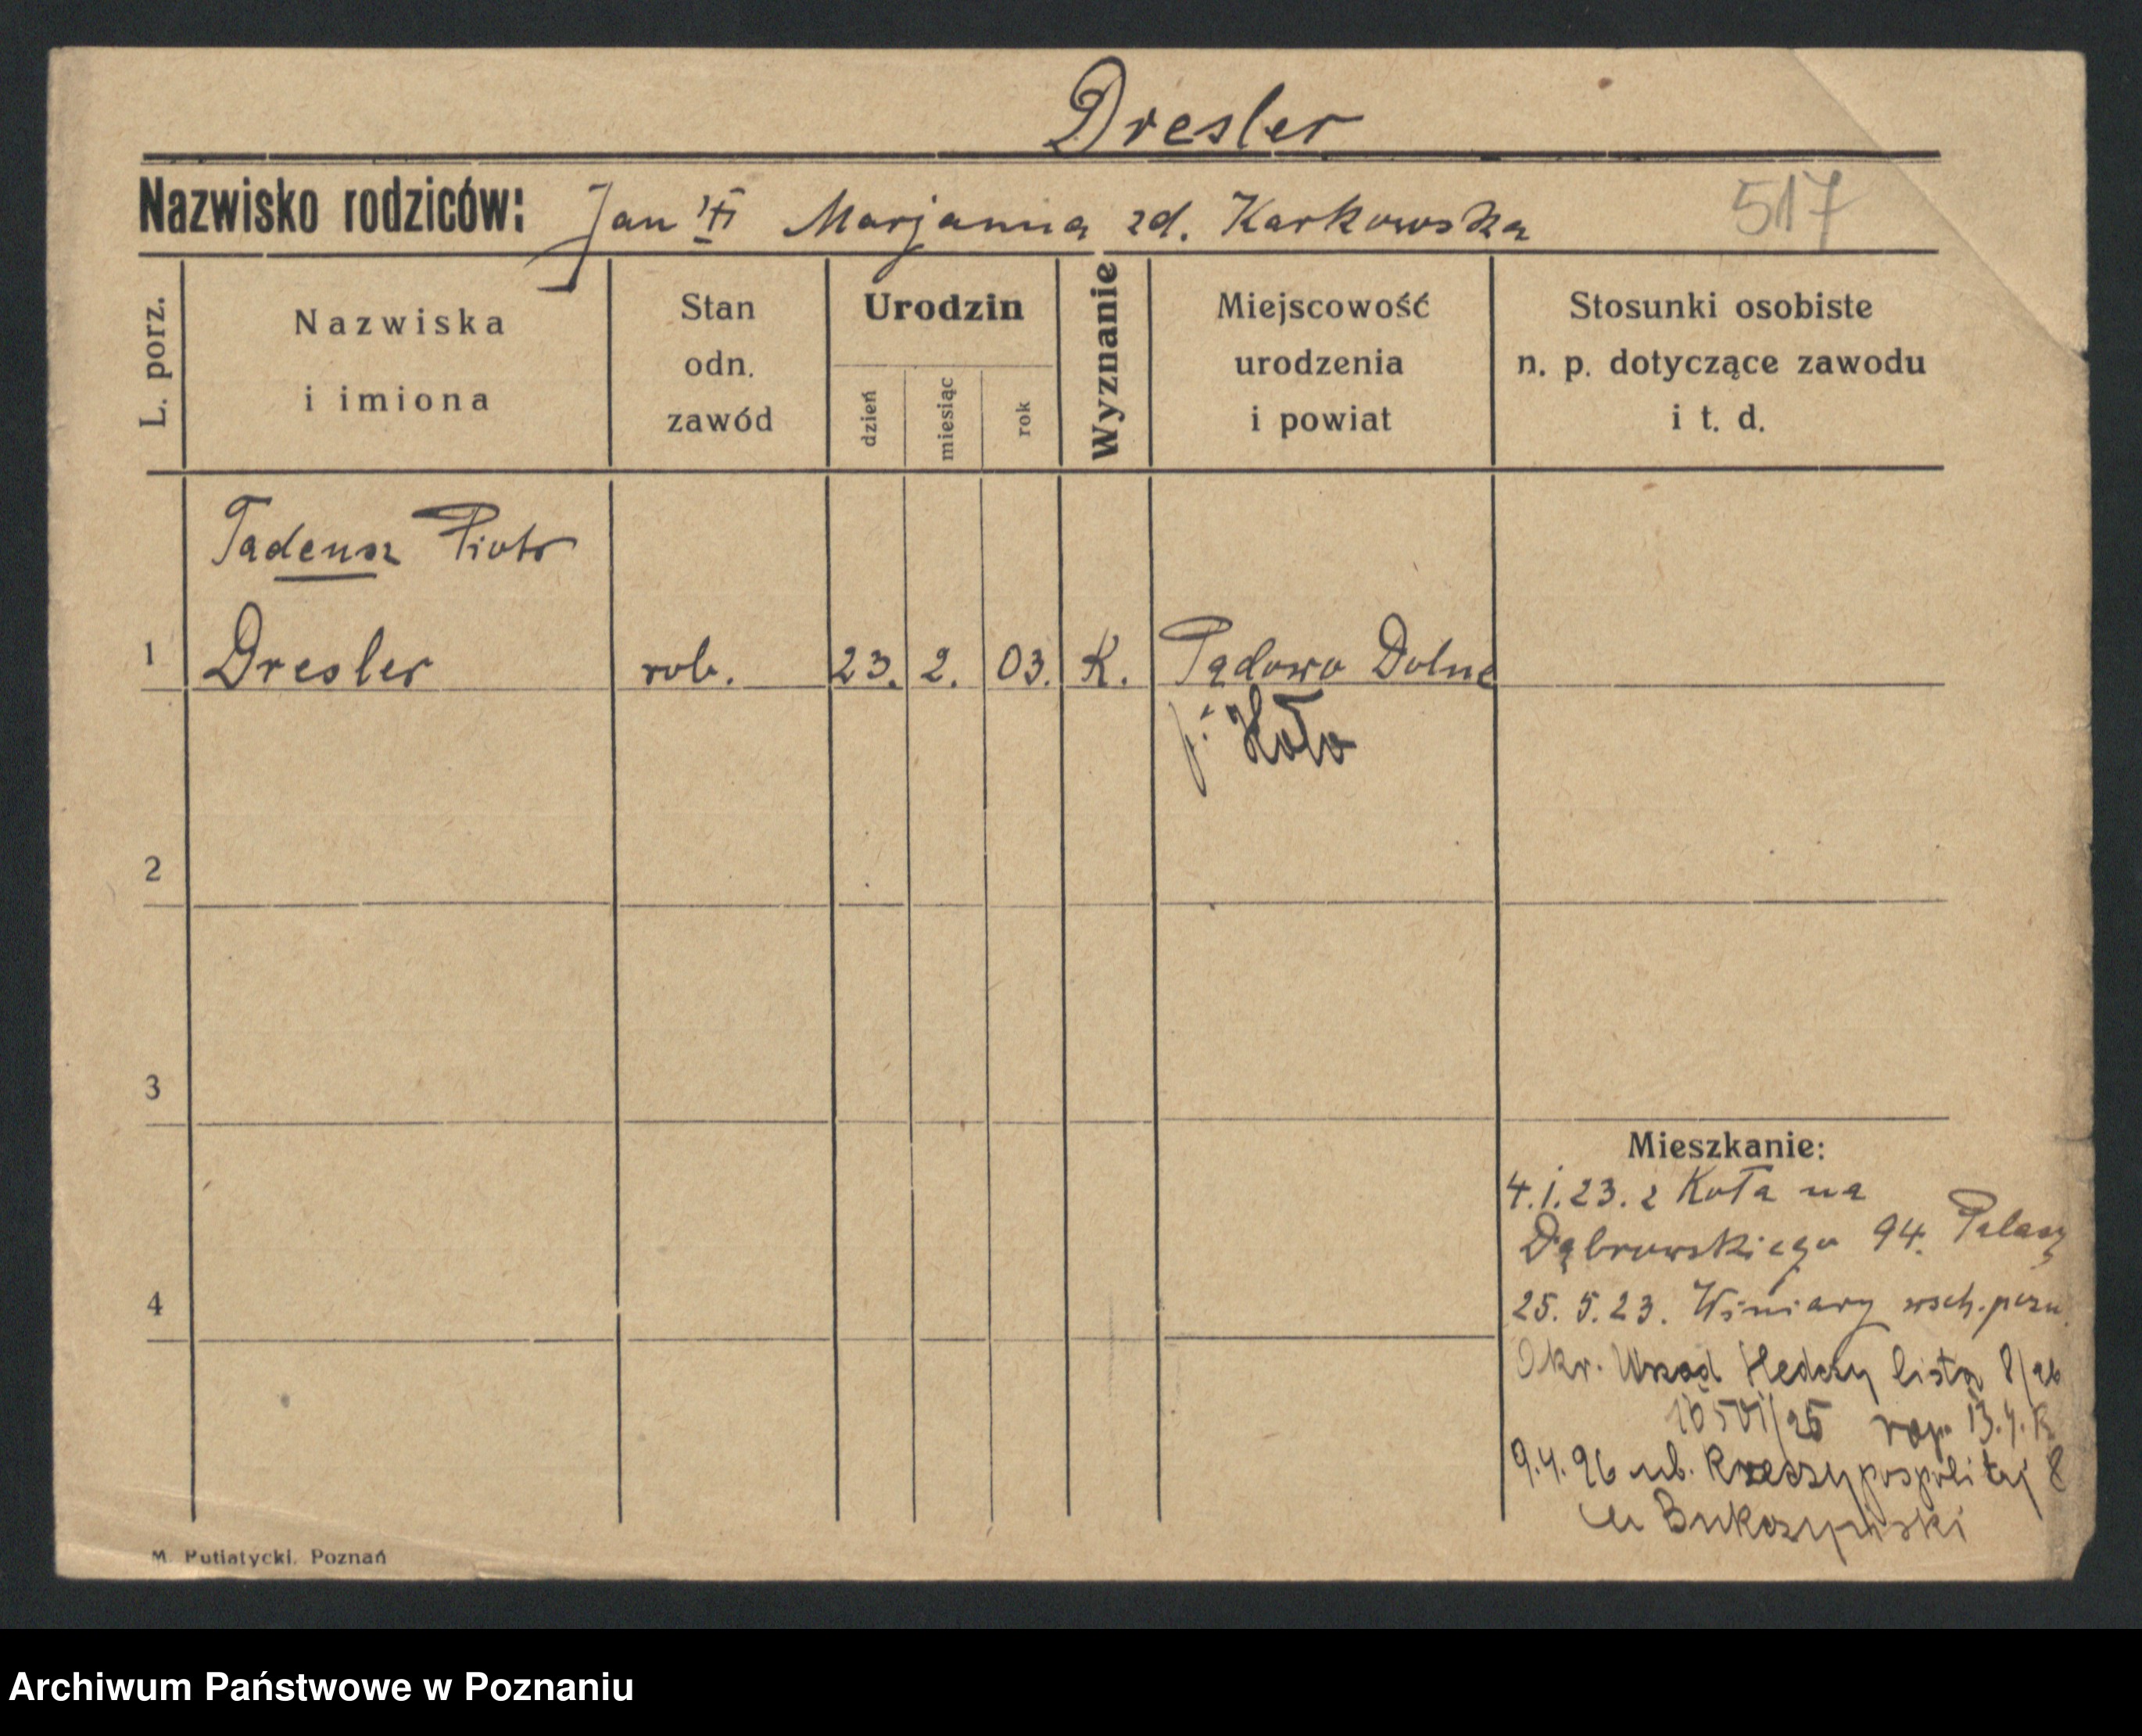 Dresler
Nazwisko rodziców: Jan Marjanna zd. Karkowska 517
L. porz.
Nazwiska
i imiona
Stan
odn.
zawód
Urodzin
dzień
miesiąc
rok
Wyznanie
Miejscowość
urodzenia
i powiat
Stosunki osobiste
n. p. dotyczące zawodu
i t. d.
Tadeusz Piotr
1 Dresler rob. 23. 2. 03. K. Dolne
p. Koło
2
3
Mieszkanie:
4.1.23. z Koła na
Dąbrowskiego 94.
4
25. 5. 23. Winiary wsch. pozn.
Okr. Urząd lista 8/26
13.4.
9.4.26 ul. Rzeczypospolitej 8
u
M. Putiatycki. Poznań
Archiwum Państwowe w Poznaniu